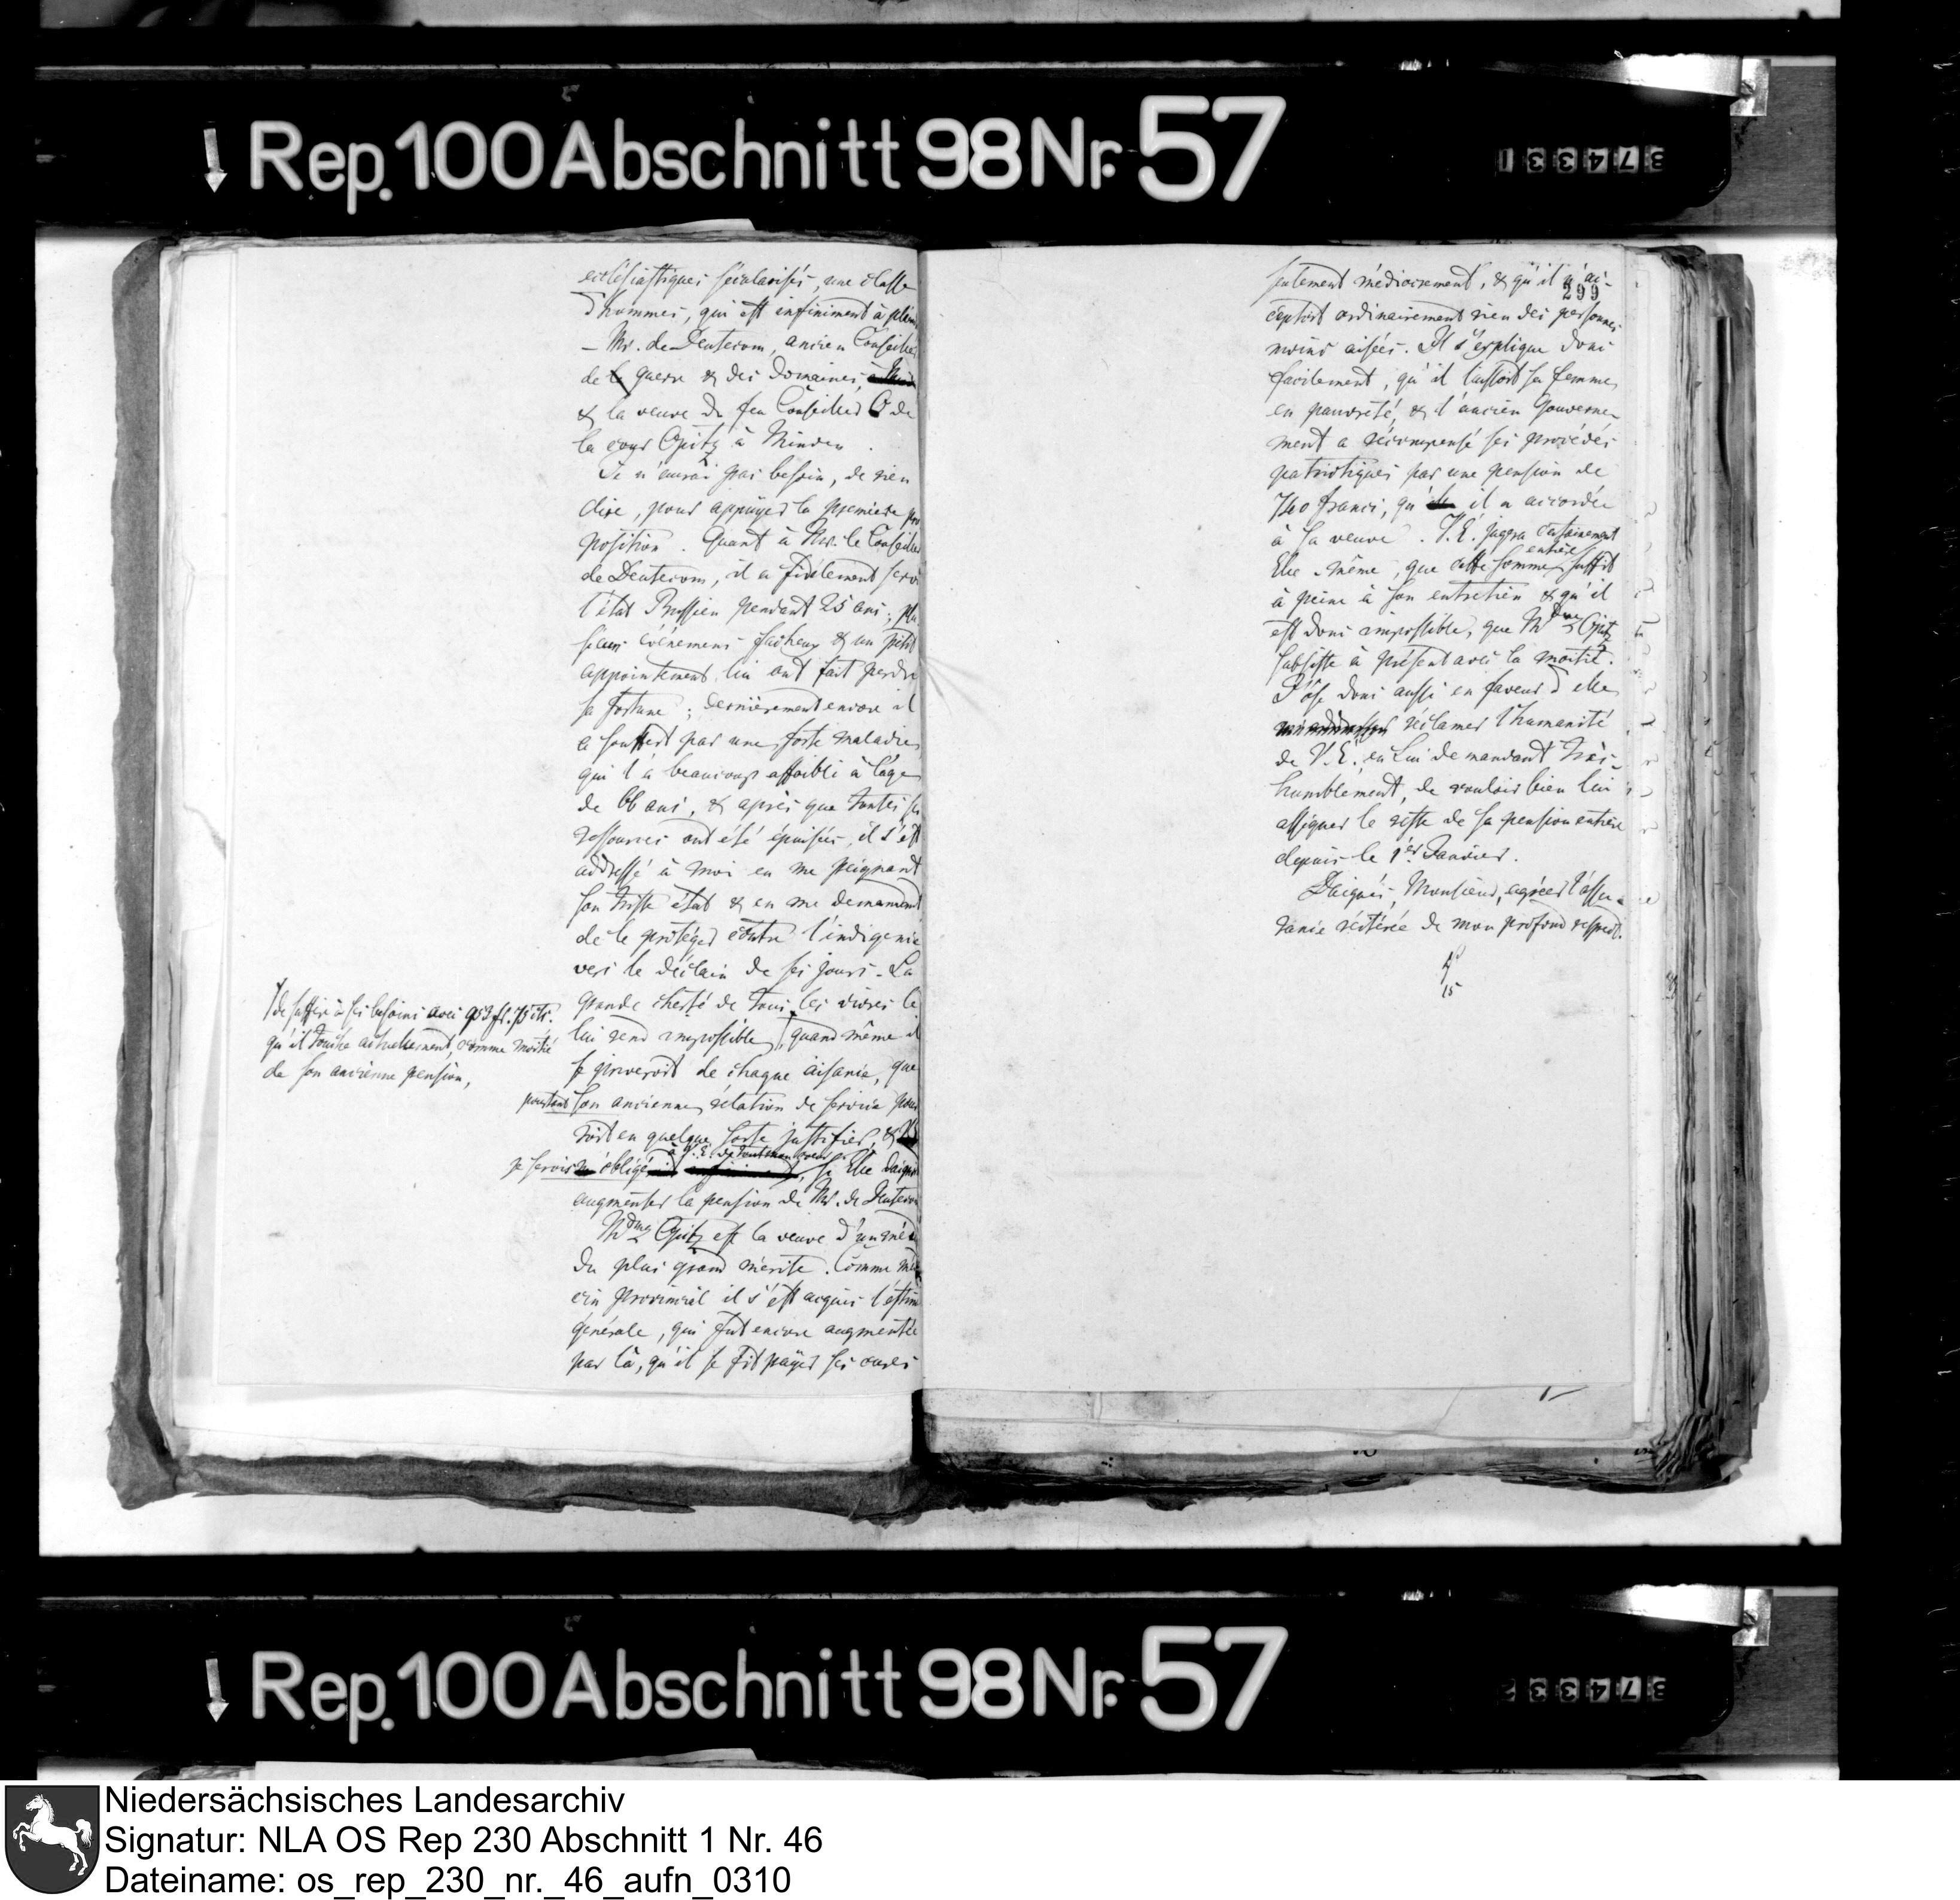 Rep. 100 Abschnitt 98 Nr. 57
374331
ecclésiastiques sécularisés, une classe
d'hommes, qui est infiniment à plain
– Mr. de Deutecom, ancien Conseiller
de guerre & des Domaines,
& la veuve du feu Conseiller de
la cour Opitz à Minden.
Je n'aurai pas besoin, de rien
dire, pour appuyer la premiere pro
position. Quant à Mr. le Conseiller
de Deutecom, il a fidèlement servi
l'état Prussien pendant 25 ans; plu
sieurs évènemens facheux & un petit
appointement lui ont fait perdre
sa fortune; dernièrement encore il
a souffert par une forte maladie,
qui l'a beaucoup affoibli à l'age
de 66 ans, & après que toutes ses
ressources ont été épuisées, il s'est
addressé à moi en me peignant
son triste état & en me demandant
de le protéger contre l'indigence
vers le déclain de ses jours. La
grande cherté de tous les vivres le
lui rend impossible, quand même il
se priveroit de chaque aisance, que
son ancienne rélation de service pour
roit en quelque sorte justifier, &
je serois obligé à V. E. de tout mon coeur, si Elle daigne
augmenter la pension de Mr. de Deutecom
Mdme Opitz est la veuve d'un méd
du plus grand mérite. Comme méde
cin provincial il s'est acquis l'estime
générale, qui fut encore augmentée
par là, qu'il se fit payer ses cures
de suffire à ses besoins avec 953 fr. 75 cts.
qu'il touche actuellement, comme moitié
de son ancienne pension,
pourtant
299
seulement médiocrement, & qu'il n'ac-
ceptoit ordinairement rien des personnes
moins aisées. Il s'explique donc
facilement, qu'il laissoit sa femme
en pauvreté, & l'ancien Gouverne-
ment a récompensé ses procédés
patriotiques par une pension de
740 francs, qu'il a accordée
à sa veuve. V. E. jugera certainement
Elle-même, que cette somme entière suffit
à peine à son entretien & qu'il
est donc impossible, que Mdme Opitz
subsiste à présent avec la moitié.
J'ose donc aussi en faveur d'elle
réclamer l'humanité
de V. E. en Lui demandant très-
humblement, de vouloir bien lui
assigner le reste de sa pension entière
depuis le 1er Janvier.
Daignés, Monsieur, agréer l'assu-
rance réitérée de mon profond respect.
15
Rep. 100 Abschnitt 98 Nr. 57
Niedersächsisches Landesarchiv
Signatur: NLA OS Rep 230 Abschnitt 1 Nr. 46
Dateiname: os_rep_230_nr._46_aufn_0310